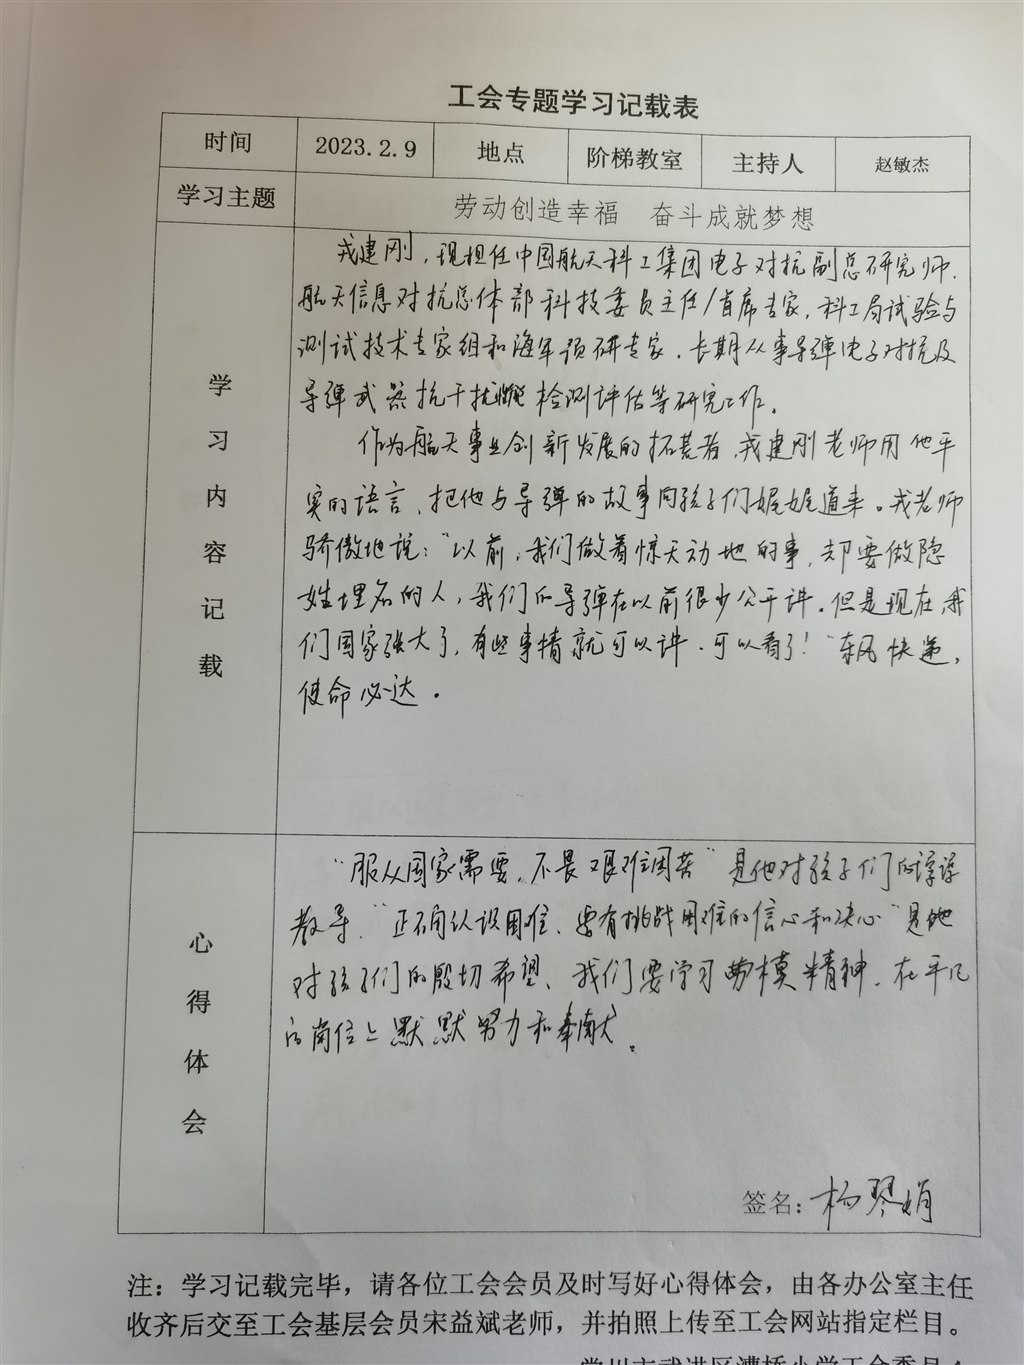 工会专题学习记载表
时间 2023.2.9 地点 阶梯教室 主持人 赵敏杰
学习主题 劳动创造幸福 奋斗成就梦想
学习内容记载
戎建刚，现担任中国航天科工集团电子对抗副总研究师.
航天信息对抗总体部科技委员主任/首席专家，科工局试验与
测试技术专家组和海军预研专家．长期从事导弹电子对抗及
导弹武器抗干扰 检测评估等研究工作．
作为航天事业创新发展的拓荒者，戎建刚老师用他平
实的语言，把他与导弹的故事向孩子们娓娓道来。戎老师
骄傲地说："以前，我们做着惊天动地的事，却要做隐
姓埋名的人，我们的导弹在以前很少公开讲．但是现在，我
们国家强大了，有些事情就可以讲．可以看了！"东风快递，
使命必达．
心得体会
"服从国家需要，不畏艰难困苦"是他对孩子们的谆谆
教导．"正确认识困难、要有挑战困难的信心和决心"是他
对孩子们的殷切希望、我们要学习劳模精神．在平凡
的岗位上默默努力和奉献．
签名：杨琴娟
注：学习记载完毕，请各位工会会员及时写好心得体会，由各办公室主任
收齐后交至工会基层会员宋益斌老师，并拍照上传至工会网站指定栏目。
常州市武进区漕桥小学工会委员会